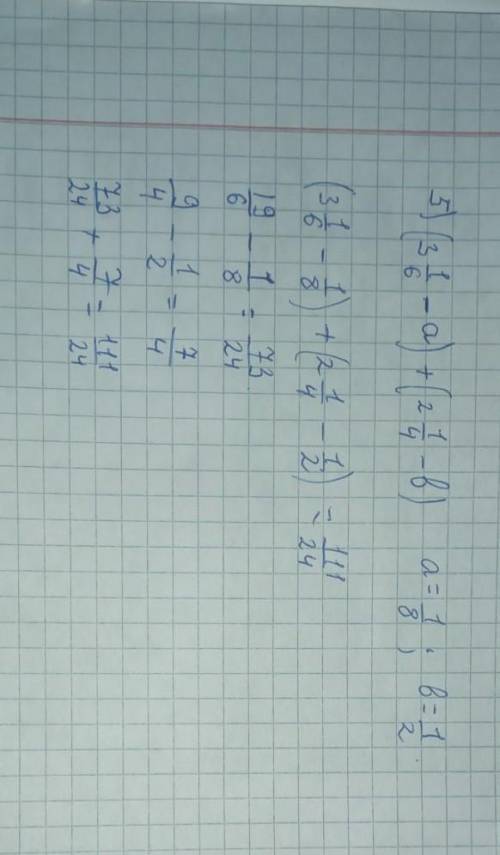 5) (3 1/6 - a) + (2 1/4 - в) a = 1/8; в = 1/2
(3 1/6 - 1/8) + (2 1/4 - 1/2) = 111/24
19/6 - 1/8 = 73/24
9/4 - 1/2 = 7/4
73/24 + 7/4 = 111/24